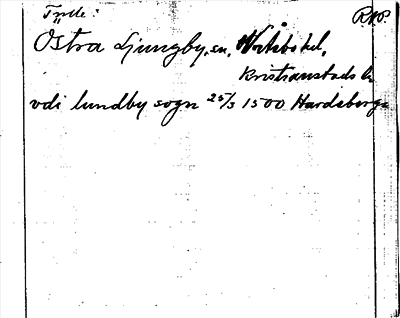 Tydl: RAP.
Östra Ljungby, sn,
Kristianstads l.
vdi lundby sogn 25/3 1500 Hardeberga